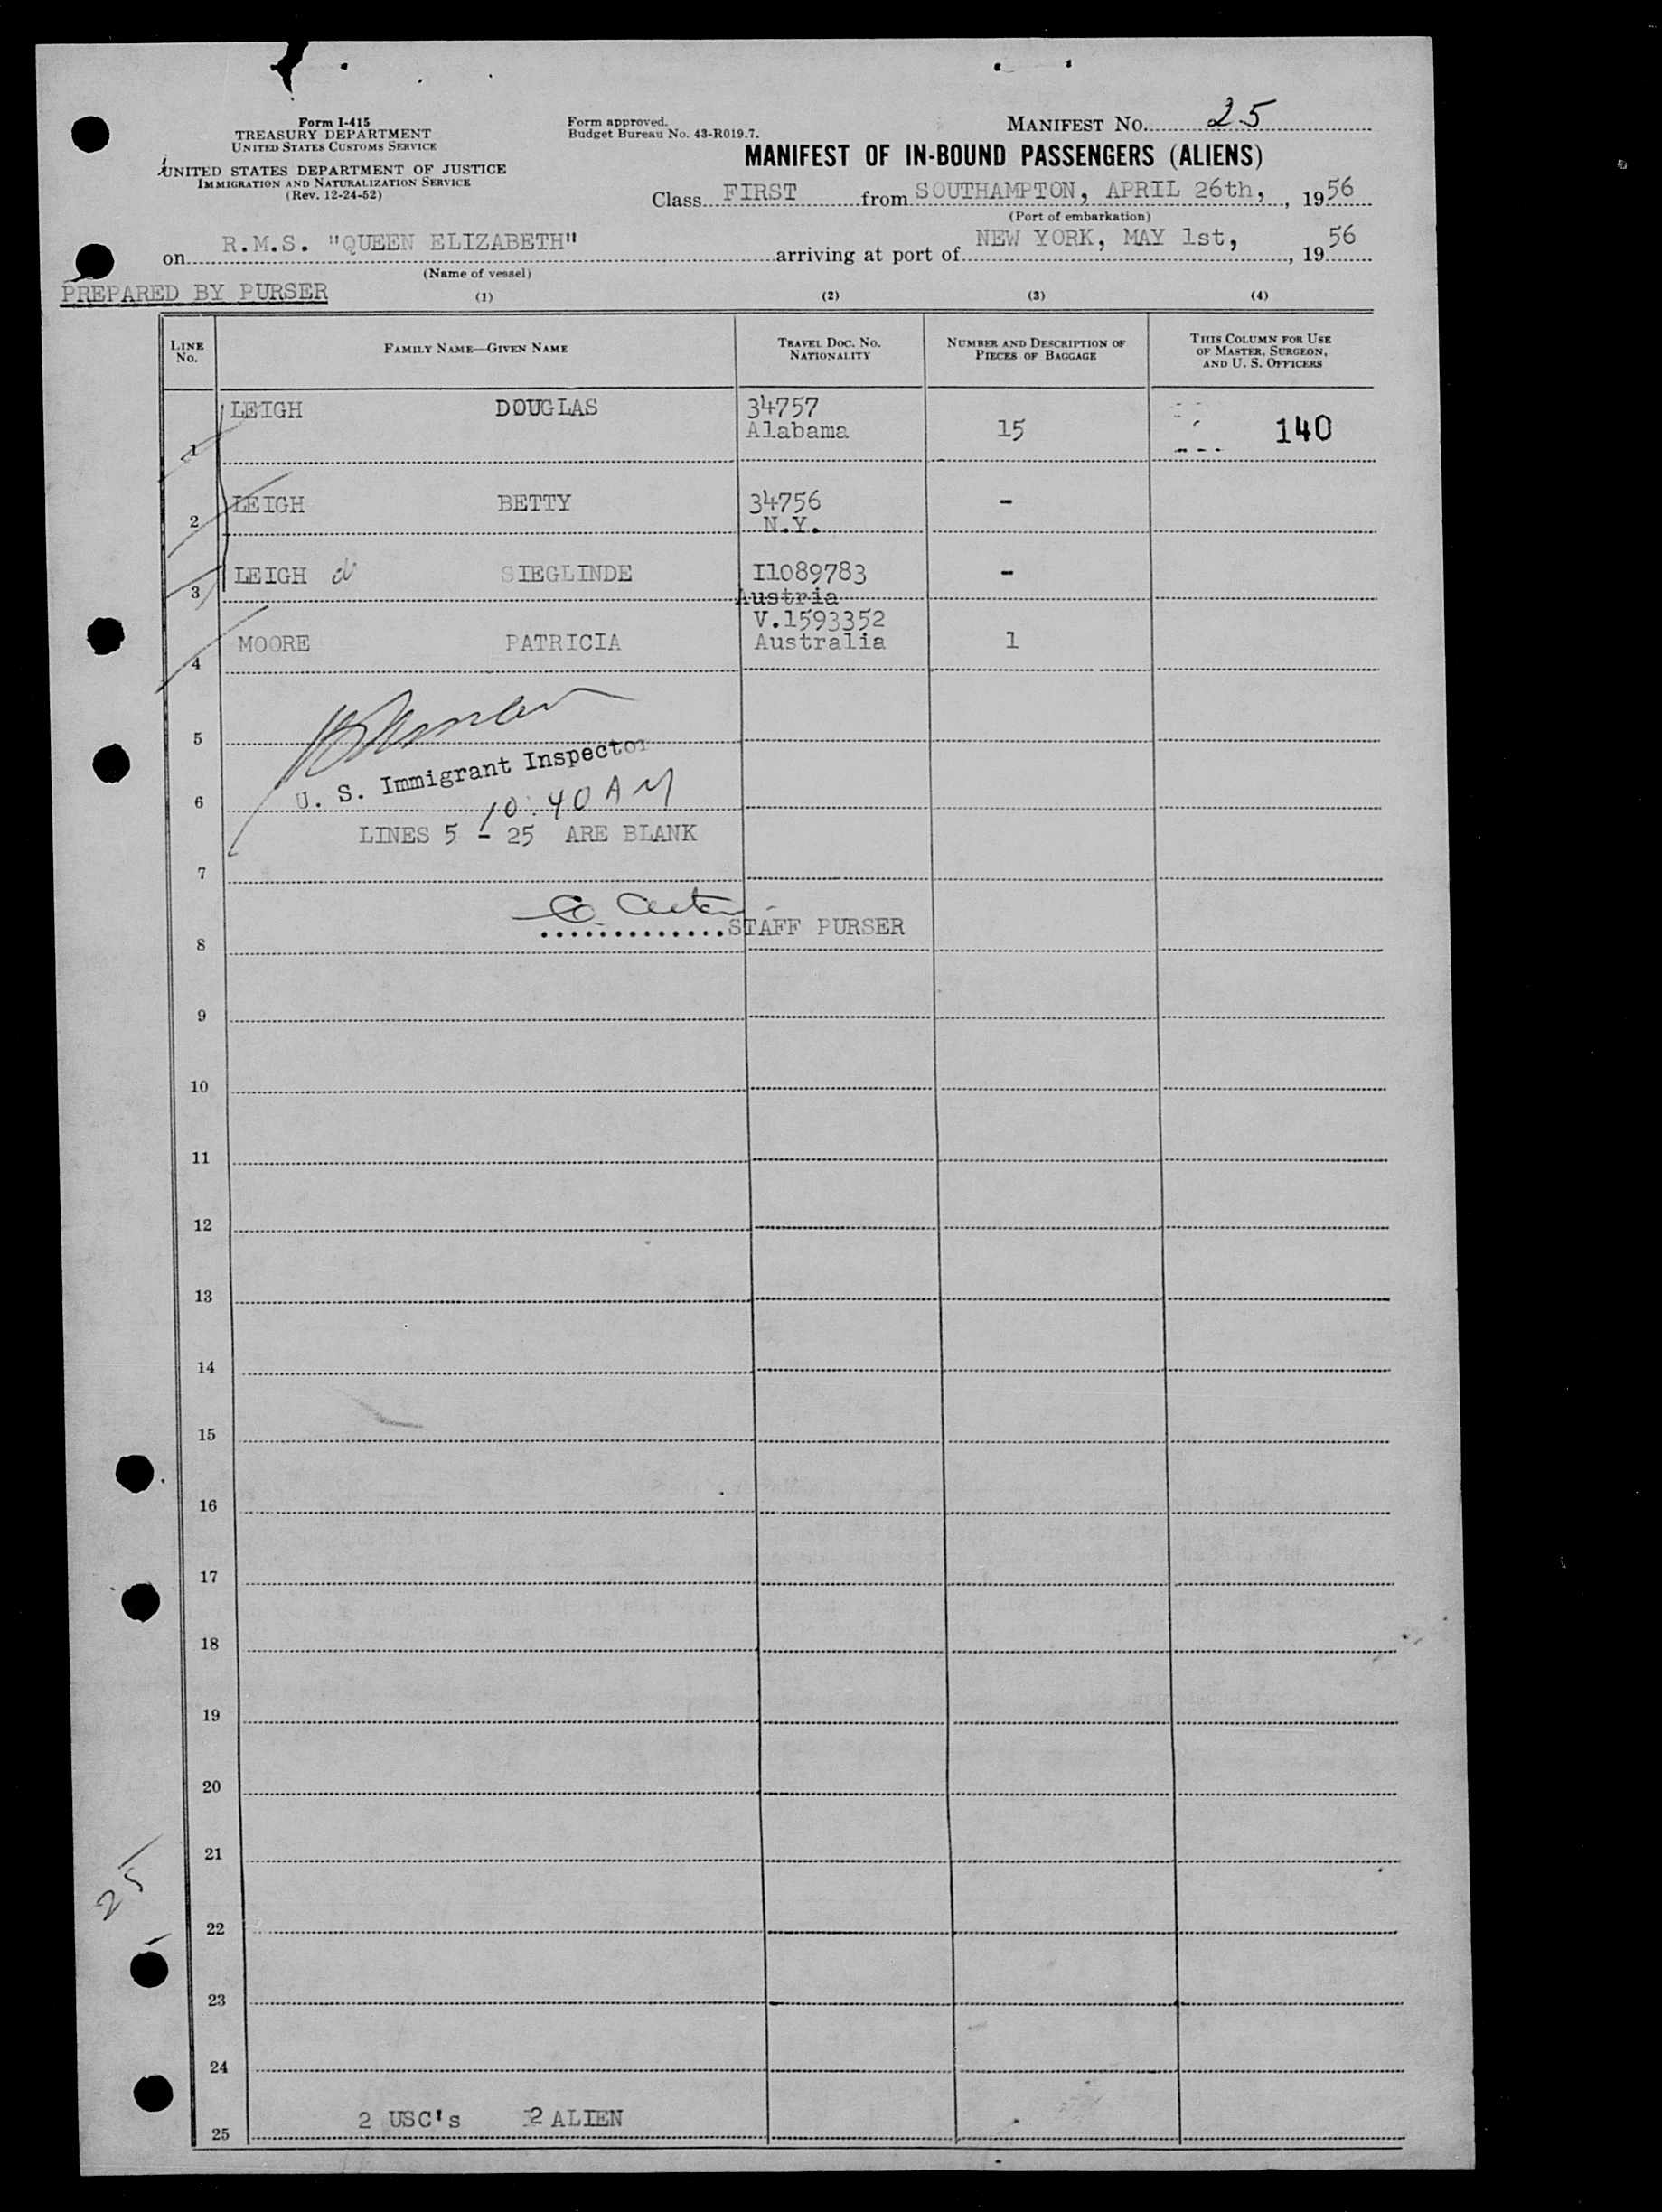 Form I-415
TREASURY DEPARTMENT
UNITED STATES CUSTOMS SERVICE
UNITED STATES DEPARTMENT OF JUSTICE
IMMIGRATION AND NATURALIZATION SERVICE
(Rev. 12-24-52)
Form approved.
Budget Bureau No. 43-R019.7.
MANIFEST NO. 25
MANIFEST OF IN-BOUND PASSENGERS (ALIENS)
Class FIRST from SOUTHAMPTON, APRIL 26th, , 1956
(Port of embarkation)
on R.M.S. "QUEEN ELIZABETH" arriving at port of NEW YORK, MAY 1st, , 1956
(Name of vessel)
PREPARED BY PURSER
(1) (2) (3) (4)
LINE No. FAMILY NAME—GIVEN NAME TRAVEL DOC. NO. NATIONALITY NUMBER AND DESCRIPTION OF PIECES OF BAGGAGE THIS COLUMN FOR USE OF MASTER, SURGEON, AND U. S. OFFICERS
1 LEIGH DOUGLAS 34757 Alabama 15 140
2 LEIGH BETTY 34756 N.Y. -
3 LEIGH SIEGLINDE I1089783 Austria -
4 MOORE PATRICIA V.1593352 Australia 1
5
U. S. Immigrant Inspector
6 10:40 AM
LINES 5 - 25 ARE BLANK
7
.............STAFF PURSER
8
9
10
11
12
13
14
15
16
17
18
19
20
21
25
22
23
24
2 USC's 2 ALIEN
25